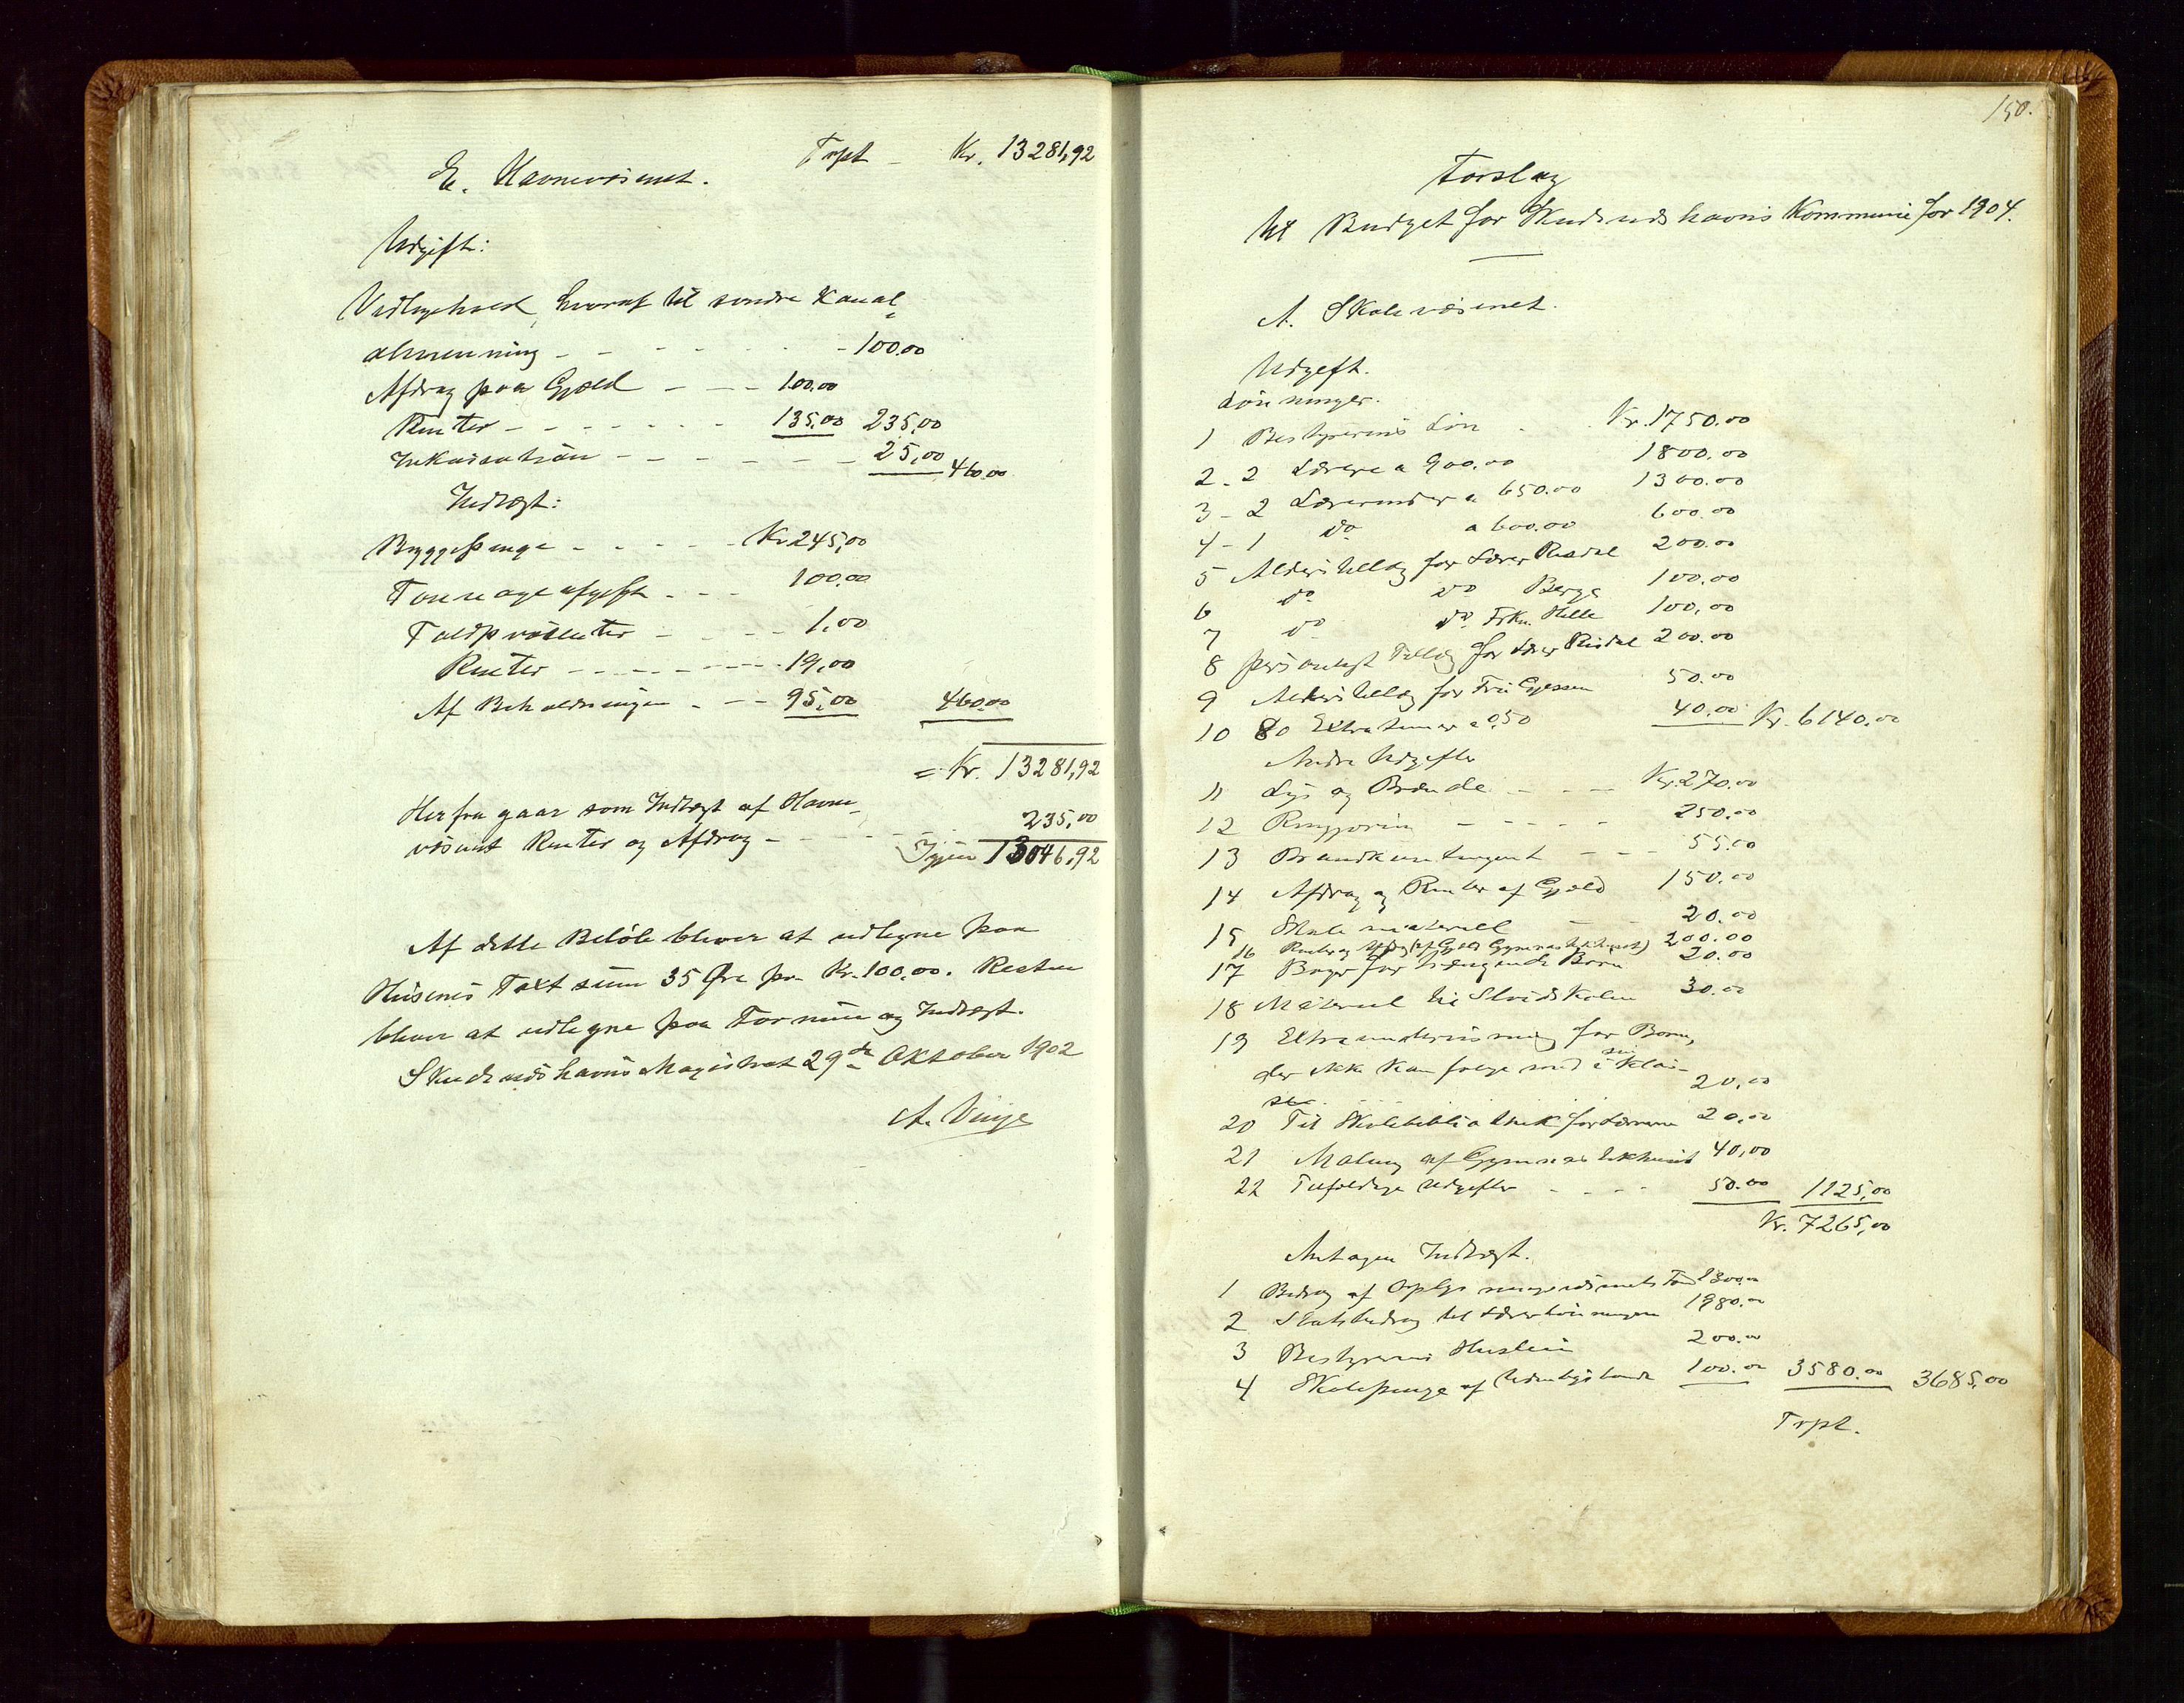 Trpt - Kr. 13281,92
E. Havnevæsenet.
Udgift:
Vedligehold, hvoraf til søndre Kanal-
almenning - - - - - - 100.00
Afdrag paa Gjæld - - - 100.00
Renter - - - - - - - 135,00 235,00
Inkassation - - - - - - 25,00 460.00
Indtægt:
Bryggepenge - - - - - Kr 245,00
Tonnageafgift - - - 100.00
Toldprocenter - - - - 1.00
Renter - - - - - - - 19,00
Af Beholdningen - - - 95,00 460.00
= Kr. 13281,92
Herfra gaar som Indtægt af Havne-
væsenet Renter og Afdrag - - - - - 235,00
Igjen 13046,92
Af dette Beløb bliver at udligne paa
Husenes Taxt sum 35 Øre pr. Kr. 100.00. Resten
bliver at udligne paa Formue og Indtægt.
Skudesneshavns Magistrat 29de Oktober 1902
A. Vinje
150.
Forslag
til Budget for Skudesneshavns Kommune for 1904.
A. Skolevæsenet.
Udgift.
Lønninger.
1 Bestyrerens Løn - - Kr. 1750.00
2 - 2 Lærere a 900.00 1800.00
3 - 2 Lærerinder a 650.00 1300.00
4 - 1 do a 600.00 600.00
5 Alderstillæg for Lærer 200.00
6 do do Berge 100.00
7 do do Frkn. Helle 100,00
8 personligt Tillæg for Lærer 200.00
9 Alderstillæg for Fru 50.00
10 80 Extratimer a 0,50 40.00 Kr. 6140.00
Andre Udgifter
11 Lys og Brænde - - - Kr. 270.00
12 Rengjøring - - - - - 250.00
13 Brandkontingent - - - 55.00
14 Afdrag og Renter af Gjæld 150.00
15 Skolemateriell - - 20.00
16 Renter og Afdrag (af Gjæld Gymnastikhuset) 200.00
17 Bøger for trængende Børn 20.00
18 Materiel til Sløidskolen 30.00
19 Extraundervisning for Børn,
der ikke kan følge med i sin Klas-
se - - - 20,00
20 Til Skolebibliothek for Lærerne 20.00
21 Maling af Gymnastikhuset 40,00
22 Tilfældige Udgifter - - - - 50.00 1125,00
Kr. 7265,00
Antagen Indtægt.
1 Bidrag af Oplysningsvæsenets Fond 1300.00
2 Statsbidrag til Lærerlønningen 1980.00
3 Bestyrerens Husleie 200.00
4 Skolepenge af Udenbysboende 100.00 3580.00 3685,00
Trpt.